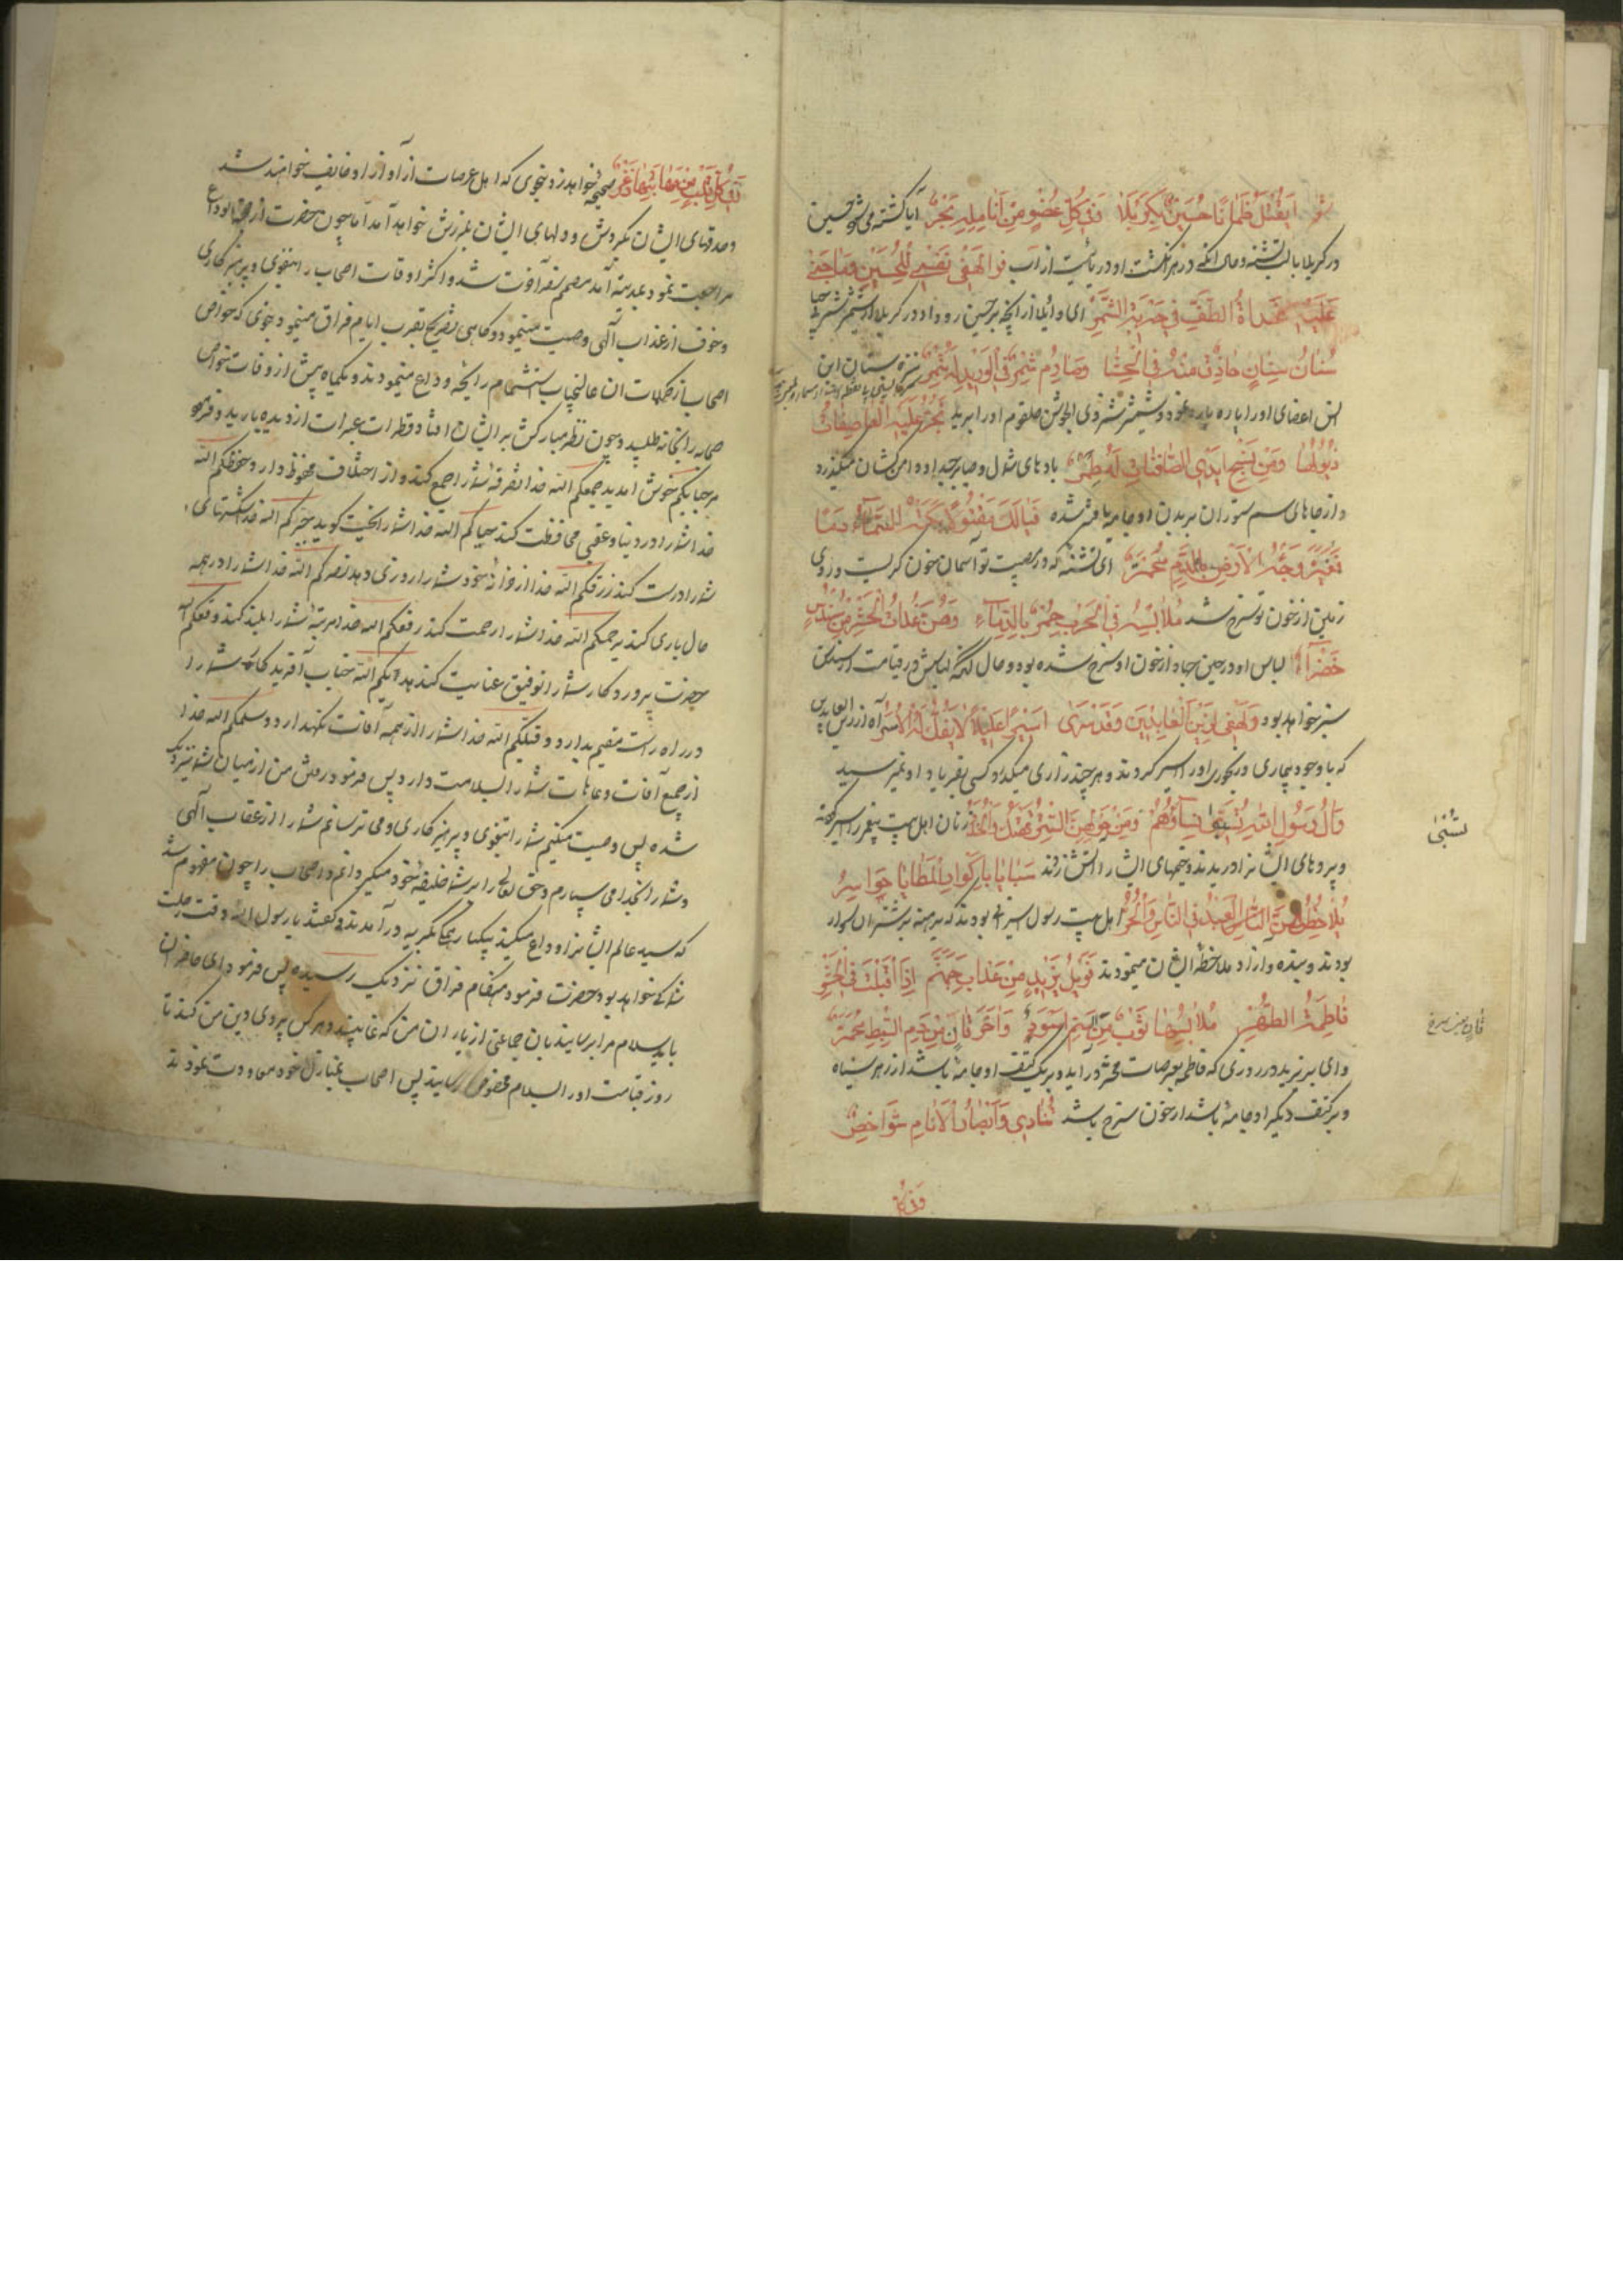 شعر ایقتل ظمآنا حسین بکربلا وفی کل عضو من انامله بحر آیا کشته می‌شود حسین
در کربلا با لب تشنه و حال آنکه در هر انگشت او دریائیست از آب فوا لهف نفسی للحسین وما جنی
علیه غداة الطف فی حربه الشمر ای وایلا از آنچه بر حسین رو داد در کربلا از شمر شریر
سنان سنان خارق منه فی الحشا وصارم شمر فی الورید له شمر نیزه سنان ابن
انس اعضای او را پاره پاره نمود و شمشیر شمر ذی الجوشن حلقوم او را برید تجر علیه العاصفات
ذیولها ومن نسج ایدی الصافنات له طمر بادهای شمال و صبا بر جسد او دامن کشان میگذرد
و از جاهای سم ستوران بر بدن او جامه بافته شده فیالک مقتولا بکته السماء دما
تغیر وجه الارض بالدم محمر ای کشته که در مصیبت تو آسمان خون گریست و روی
زمین از خون تو سرخ شد ملابسه فی الحرب حمر من الدماء وهن غداة الحشر من سندس
خضر لباس او در حین جهاد از خون او سرخ شده بود و حال آنکه لباسش در قیامت از سندس
سبز خواهد بود ولهفی لزین العابدین وقد سری اسیرا علیلا لا یفک له الاسر آه از زین العابدین
که با وجود بیماری و رنجوری او را اسیر کردند و هر چند زاری میکرد کسی بفریاد او نمیرسید
وآل رسول الله تسبی نساؤهم ومن حولهن الستر یهتک والخدر زنان اهل بیت پیغمبر را اسیر کردند
تسبی
و پردهای ایشانرا دریدند و خیمهای ایشانرا آتش زدند سبایا باکوار المطایا حواسر
یلاحظهن العبد فی الناس والحر اهل بیت رسول اسیرانی بودند که برهنه بر شتران سوار
بودند و بنده و آزاد ملاحظه ایشان مینمودند فویل یزید من عذاب جهنم اذا اقبلت فی الحشر
فاطمة الطهر ملابسها ثوب من السم اسود وآخر قان من دم السبط محمر
قان یعنی سرخ
وای بر یزید در روزی که فاطمه بعرصات محشر در آید و بر یک کتف او جامه باشد از زهر سیاه
و بر کتف دیگر او جامه باشد از خون سرخ باشد تنادی وابصار الانام شواخص
وفی کل
وفی کل قلب من مهابتها ذعر صیحه خواهد زد بنحوی که اهل عرصات از آواز او خایف خواهند شد
و حدقهای ایشان بگردش و دلهای ایشان بلرزش خواهد آمد اما چون حضرت از حجة الوداع
مراجعت نمود بمدینه آمد مصمم سفر آخرت شد و اکثر اوقات اصحاب را بتقوی و پرهیزکاری
و خوف از عذاب الهی وصیت مینمود و گاهی بصریح بقرب ایام فراق مینمود بنحوی که خواص
اصحاب از کلمات آن عالیجناب استشمام رایحه وداع مینمودند و یکماه پیش از وفات خواص
صحابه را بخانه طلبید و چون نظر مبارکش بر ایشان افتاد قطرات عبرات از دیده بارید و فرمود
مرحبا بکم خوش آمدید جمعکم الله خدا تفرقه شما را جمع کند و از اختلاف محفوظ دارد حفظکم الله
خدا شما را در دنیا و عقبی محافظت کند حیاکم الله خدا شما را تحیت گوید جبرکم الله خدا شکستهای
شما را درست کند رزقکم الله خدا از خزانه خود شما را روزی دهد نصرکم الله خدا شما را در همه
حال یاری کند یرحمکم الله خدا شما را رحمت کند رفعکم الله خدا مرتبه شما را بلند کند وفقکم الله
حضرت پروردگار شما را توفیق عنایت کند هدیکم الله جناب آفریدگار شما را
در راه راست مقیم بدارد وقیکم الله خدا شما را از همه آفات نگهدارد وسلمکم الله خدا
از جمیع آفات و عاهات شما را بسلامت دارد پس فرمود رفتن من از میان شما نزدیک
شده پس وصیت میکنم شما را بتقوی و پرهیزکاری و می ترسانم شما را از عقاب الهی
و شما را بخدا می سپارم و حق تعالی را بر شما خلیفه خود میگردانم و اصحاب را چون مفهوم شد
که سید عالم ایشانرا وداع میکند بیکبار همگی بگریه در آمدند و گفتند یا رسول الله وقت رحلت
شما کی خواهد بود حضرت فرمود هنگام فراق نزدیک رسیده پس فرمود ای حاضران
باید سلام مرا برسانید بان جماعتی از یاران من که غایبند و هر کس پیروی دین من کند تا
روز قیامت او را بسلام مخصوص رسانید پس اصحاب بمنازل خود معاودت نمودند